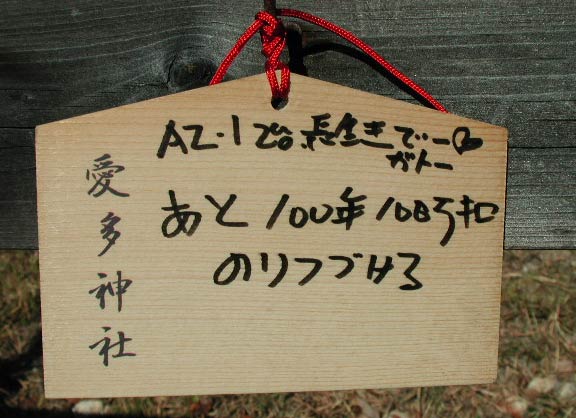 AZ-1で長生きでーの
ガトー
あと100年100万キロ
のりつづける
愛多神社